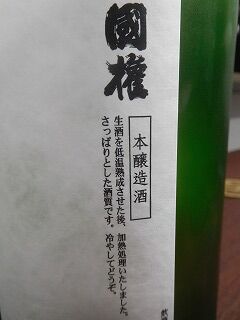 國権
本醸造酒
生酒を低温熟成させた後、加熱処理いたしました。
さっぱりとした酒質です。冷やしてどうぞ。